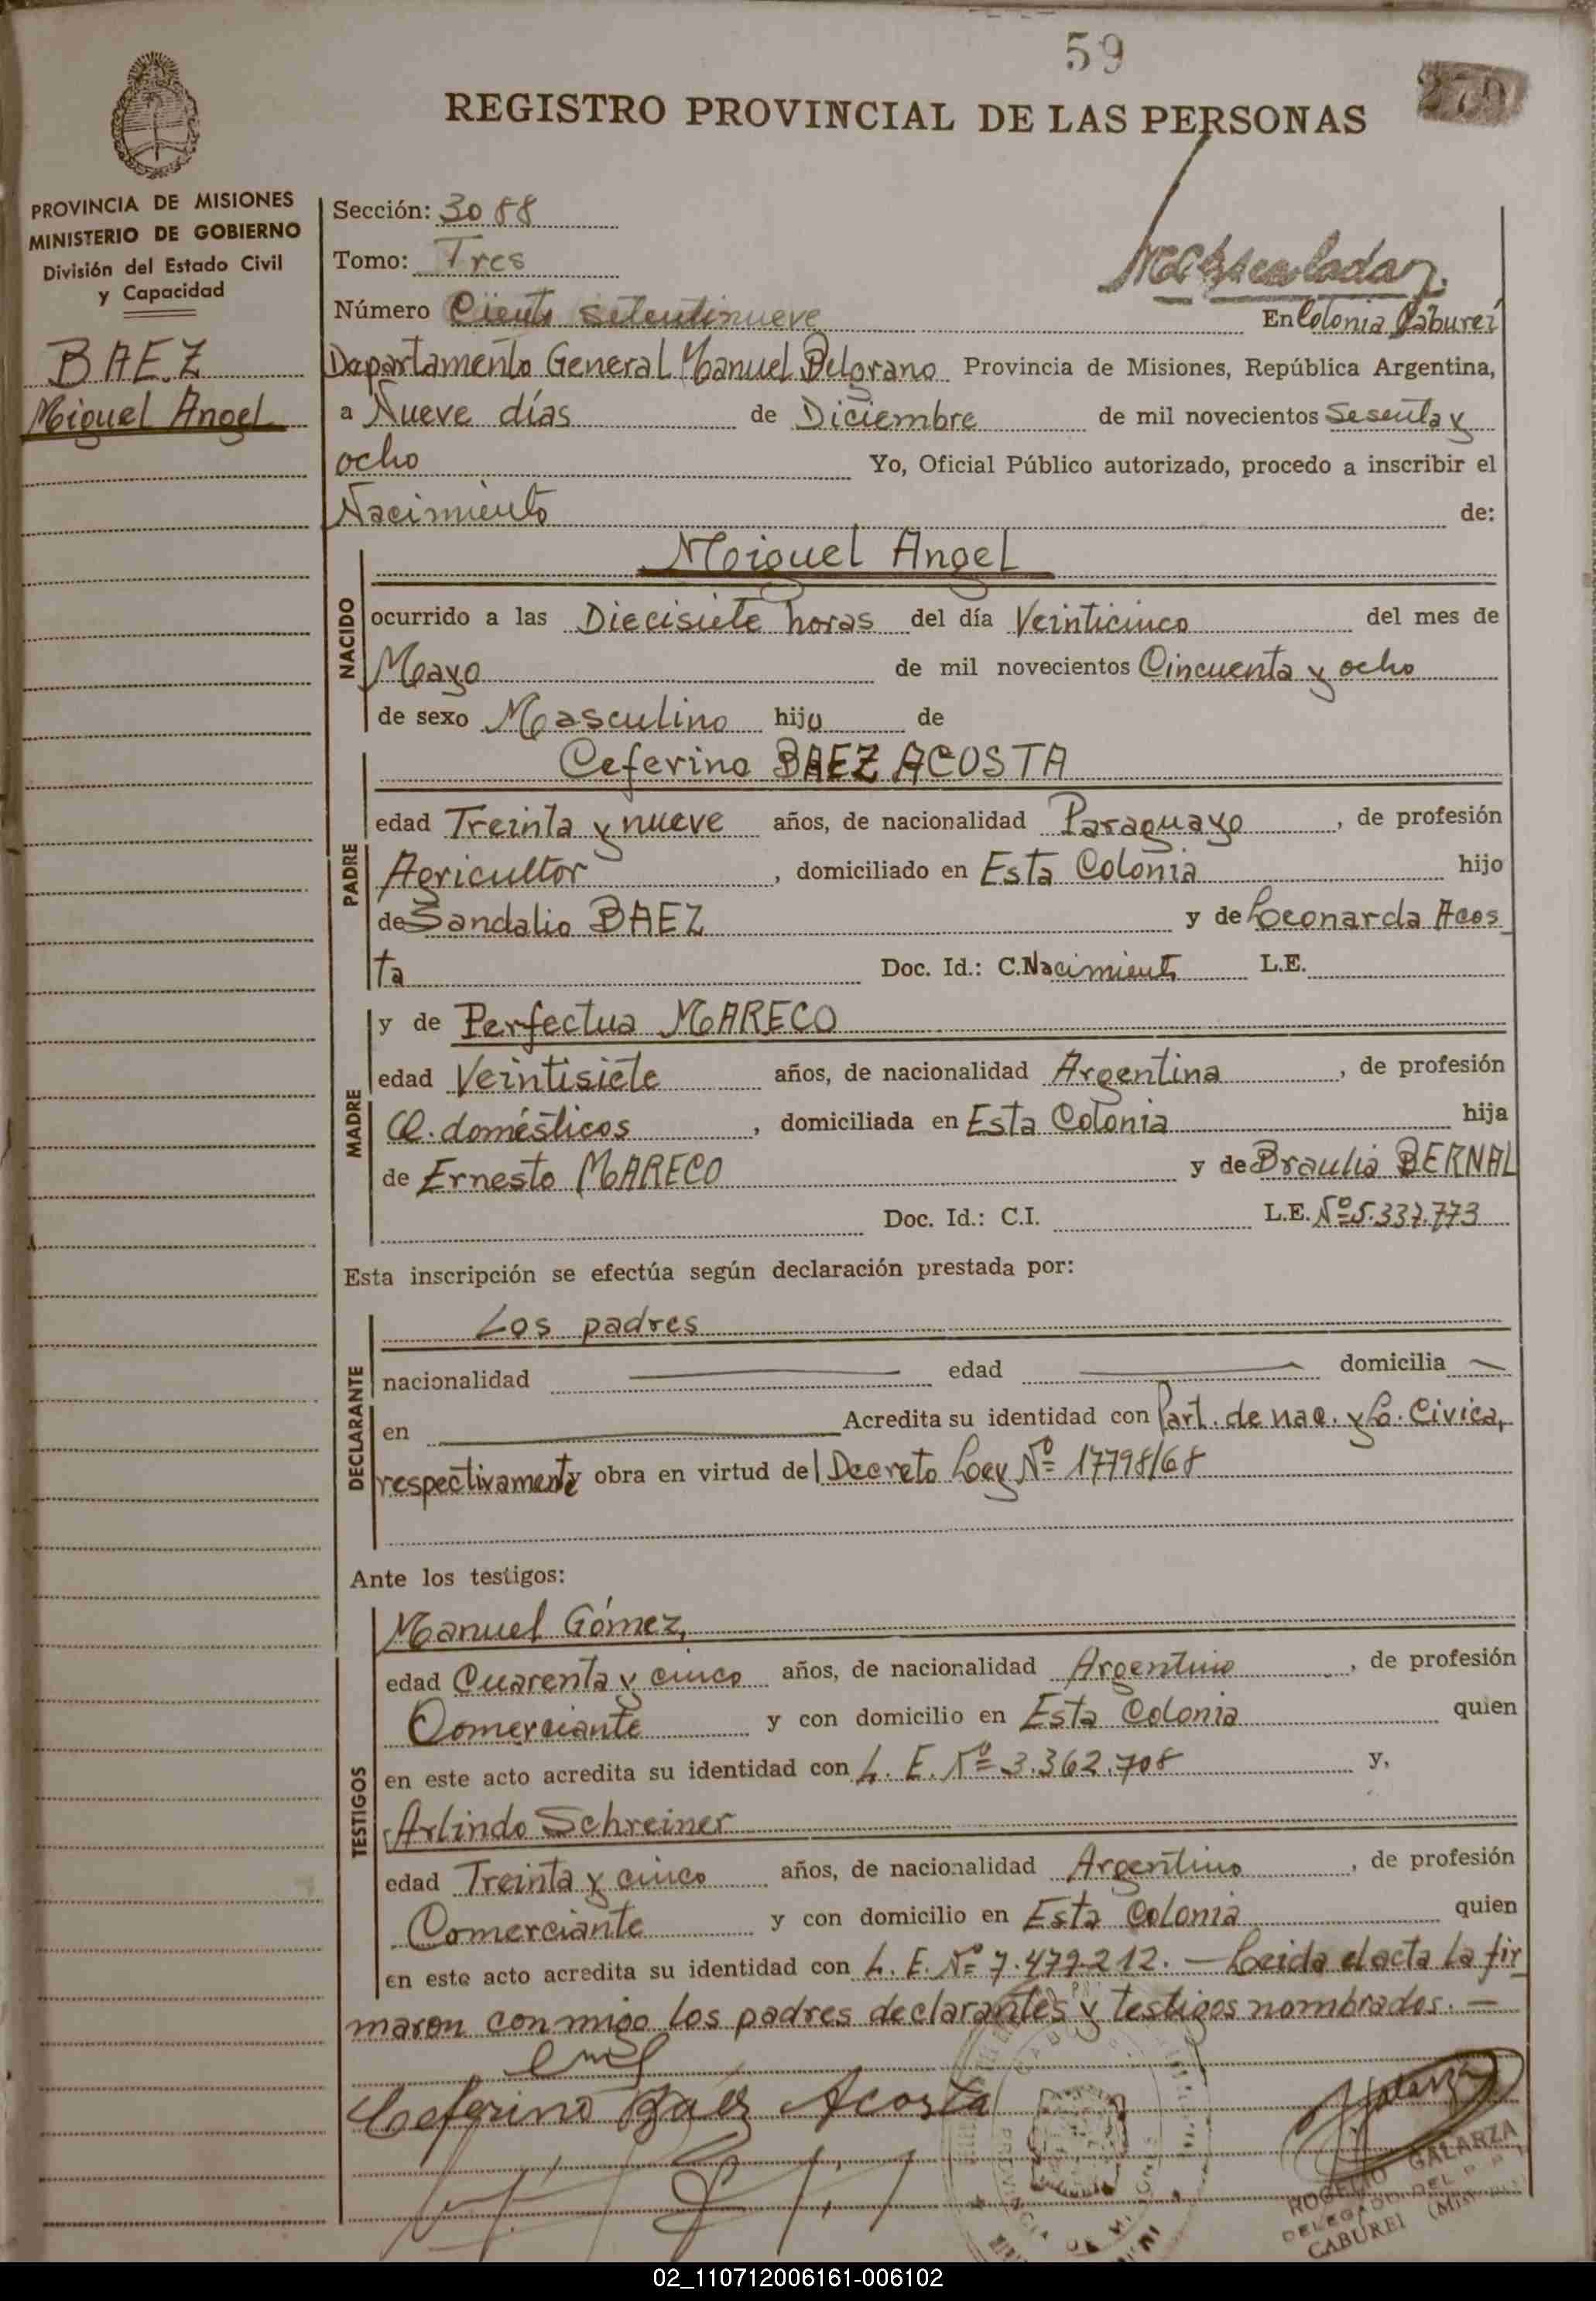 59
REGISTRO PROVINCIAL DE LAS PERSONAS
279
PROVINCIA DE MISIONES
MINISTERIO DE GOBIERNO
División del Estado Civil
y Capacidad
BAEZ
Miguel Angel
Sección: 3088
Tomo: Tres
Número Ciento setentinueve En Colonia Caburei
Departamento General Manuel Belgrano Provincia de Misiones, República Argentina,
a Nueve días de Diciembre de mil novecientos Sesenta y
ocho Yo, Oficial Público autorizado, procedo a inscribir el
Nacimiento de:
NACIDO
Miguel Angel
ocurrido a las Diecisiete horas del día Veinticinco del mes de
Mayo de mil novecientos Cincuenta y ocho
de sexo Masculino hijo de
PADRE
Ceferino BAEZ ACOSTA
edad Treinta y nueve años, de nacionalidad Paraguayo, de profesión
Agricultor, domiciliado en Esta Colonia hijo
de Sandalio BAEZ y de Leonarda Acos
ta Doc. Id.: C.Nacimiento L.E.
MADRE
y de Perfectua MARECO
edad Veintisiete años, de nacionalidad Argentina, de profesión
Q. domésticos, domiciliada en Esta Colonia hija
de Ernesto MARECO y de Braulia BERNAL
Doc. Id.: C.I. L.E. Nº 5.337.773
Esta inscripción se efectúa según declaración prestada por:
DECLARANTE
Los padres
nacionalidad edad domicilia
en Acredita su identidad con Part. de nac. y L. Civica,
respectivamente obra en virtud del Decreto Ley Nº 17798/68
Ante los testigos:
TESTIGOS
Manuel Gómez,
edad Cuarenta y cinco años, de nacionalidad Argentino, de profesión
Comerciante y con domicilio en Esta Colonia quien
en este acto acredita su identidad con L. E. Nº 3.362.708 y,
Arlindo Schreiner
edad Treinta y cinco años, de nacionalidad Argentino, de profesión
Comerciante y con domicilio en Esta Colonia quien
en este acto acredita su identidad con L. E. Nº 7.477.212. — Leida el acta la fir
maron conmigo los padres declarantes y testigos nombrados. —
Ceferino Baez Acosta
ROGELIO GALARZA
DELEGADO DEL R. P. P.
CABUREI
PROVINCIA DE MISIONES
02_110712006161-006102